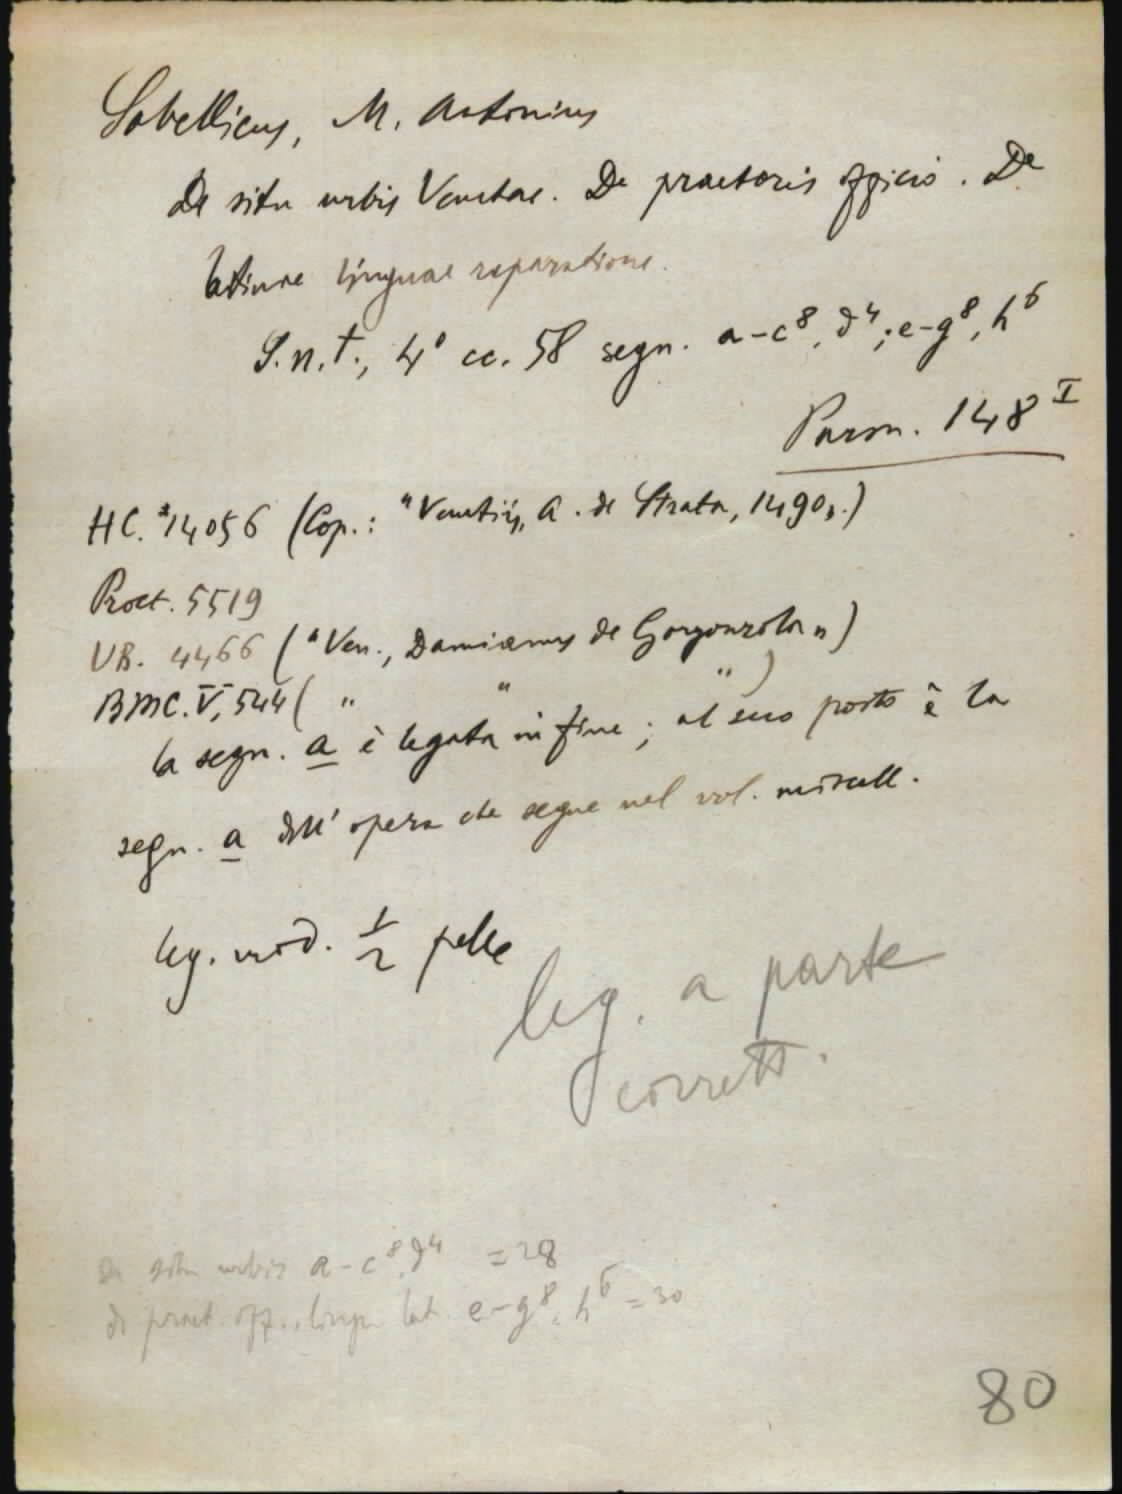 Sabellicus, M. Antonius
De situ urbis Venetae. De praetoris officio. De
latinae linguae reparatione.
S.n.t., 4° cc. 58 segn. a-c⁸, d⁴; e-g⁸, h⁶
Parm. 148 I
HC. *14056 (Cop.: "Venetiis, A. de Strata, 1490".)
Proct. 5519
VB. 4466 ("Ven., Damianus de Gorgonzola")
BMC. V, 544 ( " " " )
la segn. a è legata in fine; al suo posto è la
segn. a dell'opera che segue nel vol. miscell.
leg. mod. ½ pelle
leg. a parte
corrett.
De situ urbis a-c⁸, d⁴ = 28
de praet. off., lingu. lat. e-g⁸, h⁶ = 30
80